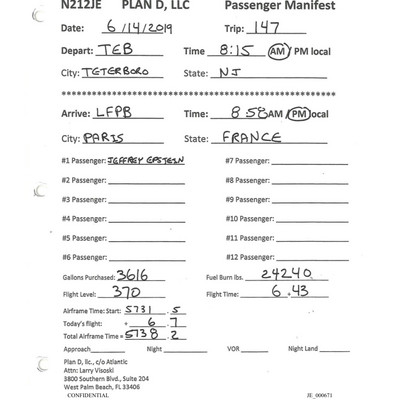 N212JE PLAN D, LLC Passenger Manifest
Date: 6/14/2019 Trip: 147
Depart: TEB Time 8:15 AM / PM local
City: TETERBORO State: NJ
Arrive: LFPB Time: 8:58 AM / PM local
City: PARIS State: FRANCE
#1 Passenger: JEFFREY EPSTEIN #7 Passenger:
#2 Passenger: #8 Passenger:
#3 Passenger: #9 Passenger:
#4 Passenger: #10 Passenger:
#5 Passenger: #11 Passenger:
#6 Passenger: #12 Passenger:
Gallons Purchased: 3616 Fuel Burn lbs. 24240
Flight Level: 370 Flight Time: 6.43
Airframe Time: Start: 5731.5
Today's flight: + 6.7
Total Airframe Time = 5738.2
Approach Night VOR Night Land
Plan D, llc, c/o Atlantic
Attn: Larry Visoski
3800 Southern Blvd., Suite 204
West Palm Beach, FL 33406
CONFIDENTIAL JE_000671